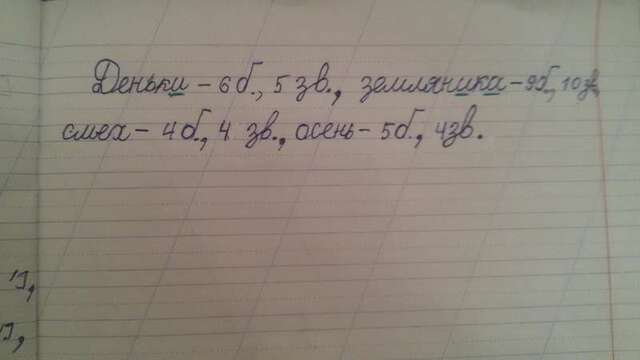 Деньки – 6 б., 5 зв., земляника – 9 б., 10 зв.,
смех – 4 б., 4 зв., осень – 5 б., 4 зв.